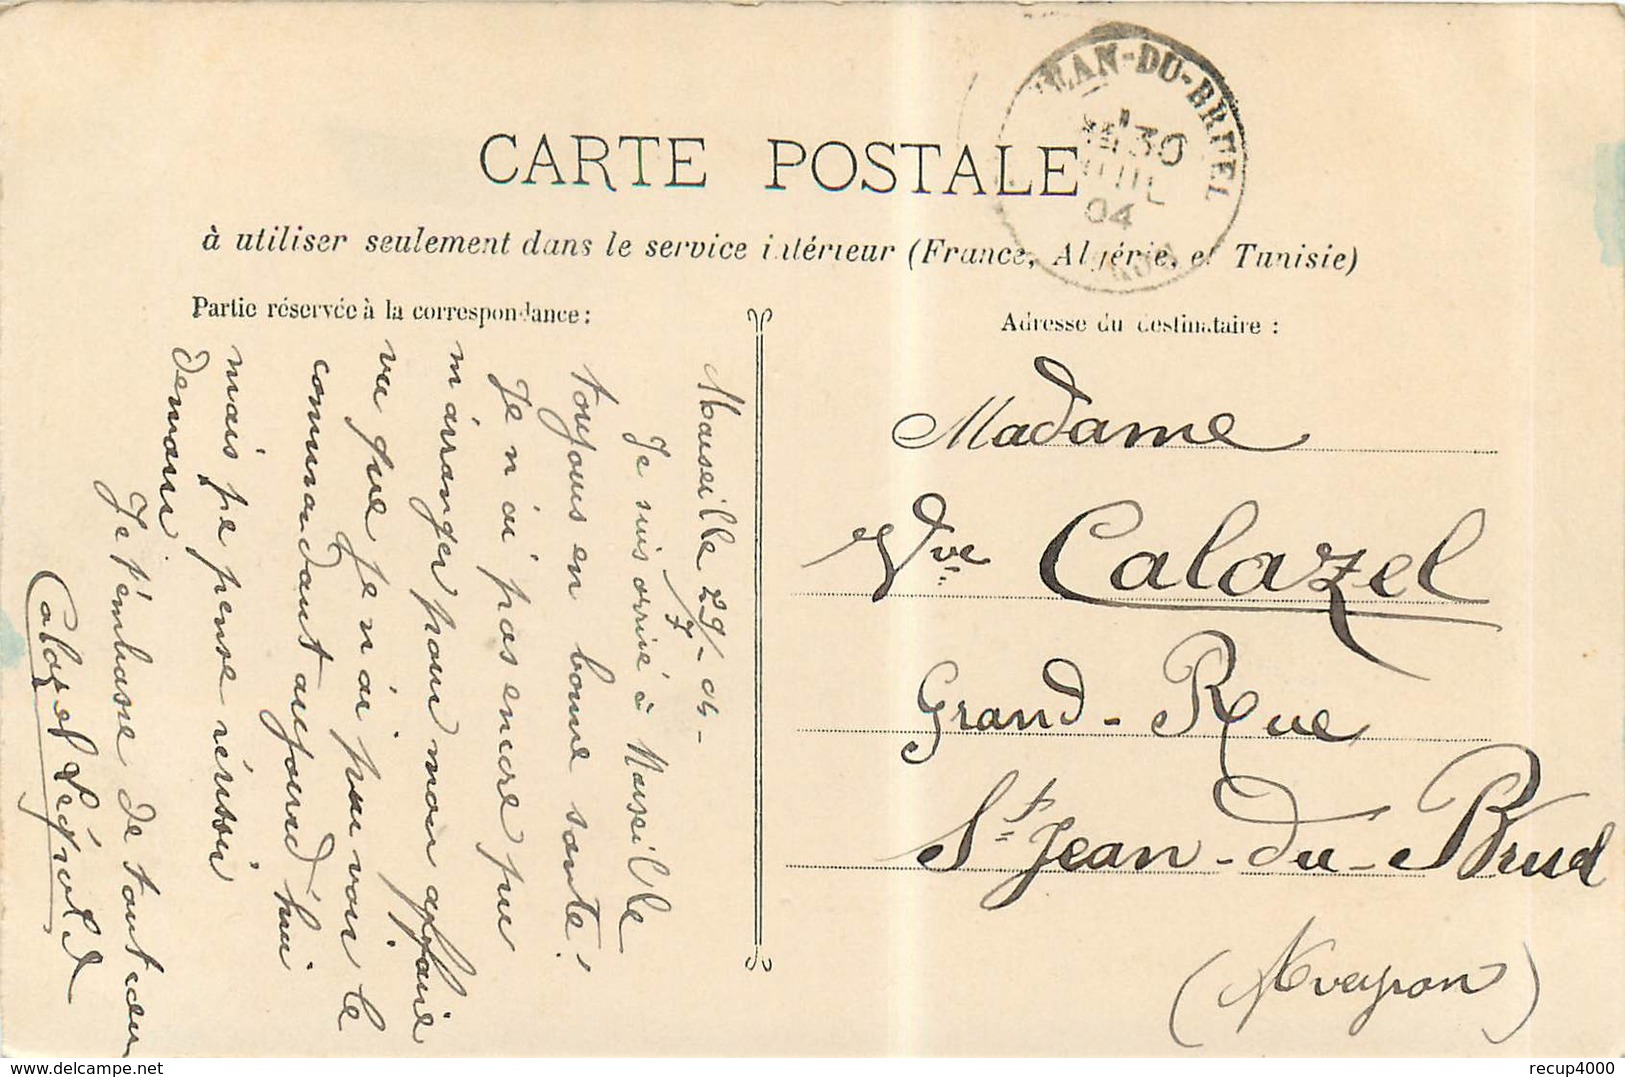 CARTE POSTALE
à utiliser seulement dans le service intérieur (France, Algérie, et Tunisie)
Partie réservée à la correspondance :
Marseille 29/7-04-
Je suis arrivé à Marseille
toujours en bonne santé!
Je n'ai pas encore pu
m'arranger pour mon affaire
vu que je n'ai pu voir le
commandant aujourd'hui
mais je pense réussir
demain
Je t'embrasse de tout cœur
Calazel
Adresse du destinataire :
Madame
Vve Calazel
Grand-Rue
St Jean-du-Bruel
(Aveyron)
JEAN-DU-BRUEL
30
JUIL
04
recup4000